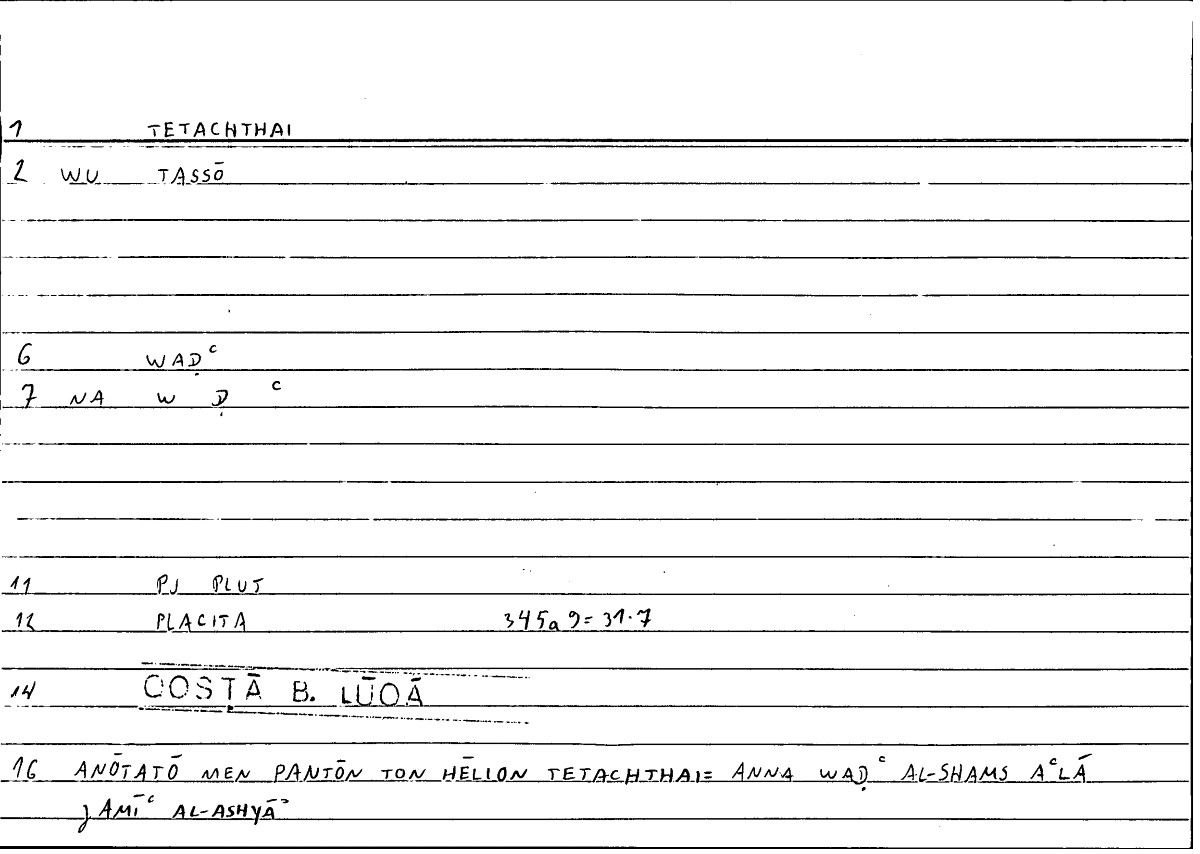 1 TETACHTHAI
2 WU TASSŌ
6 WAḌᶜ
7 NA W Ḍ ᶜ
11 PJ PLUT
12 PLACITA 345a9=31.7
14 QOSṬĀ B. LŪQĀ
16 ANŌTATŌ MEN PANTŌN TON HĒLION TETACHTHAI= ANNA WAḌᶜ AL-SHAMS AᶜLĀ
JAMĪᶜ AL-ASHYĀʾ